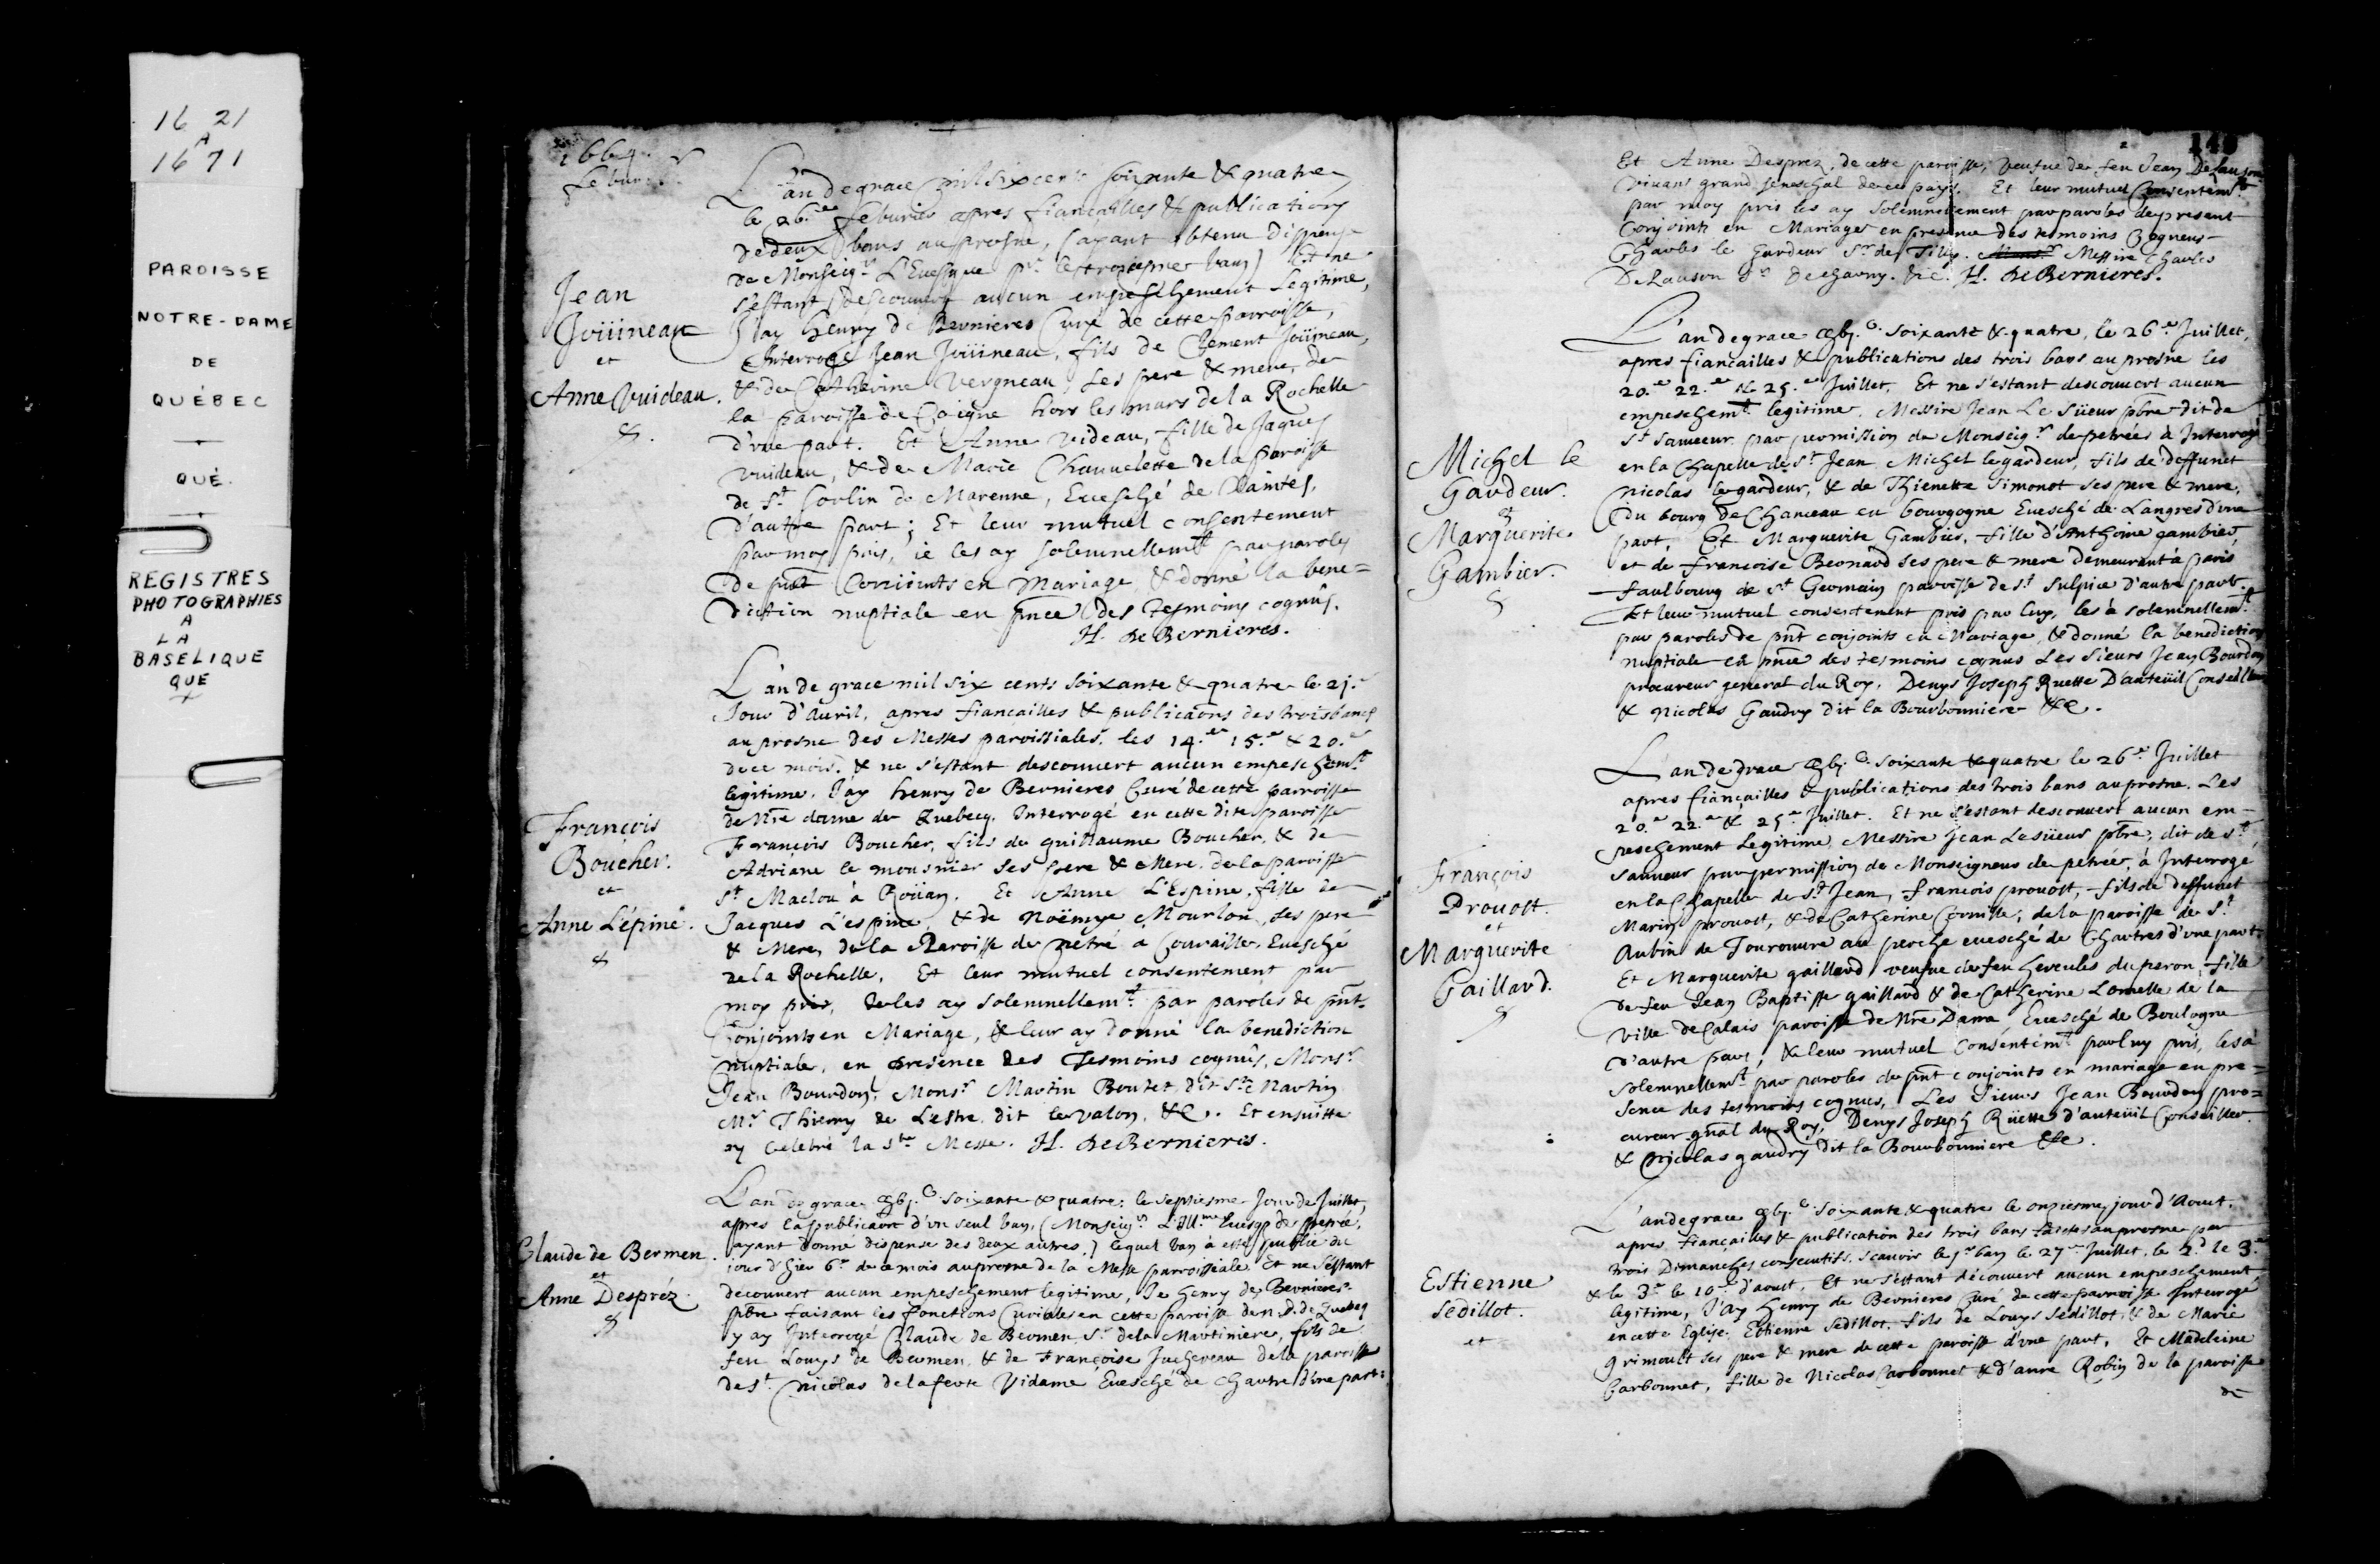 16 21
A
16 71
PAROISSE
NOTRE-DAME
DE
QUÉBEC
QUÉ.
REGISTRES
PHOTOGRAPHIES
A
LA
BASELIQUE
QUE
1664
L'an de grace mil six cents soixante & quatre
le 26.e feburier apres fiancailles & publication
de deux bans au prosne, (ayant obtenu dispense
de Monseigr L'Euesque pr le troisiesme ban) Et ne
s'estant descouvert aucun empeschement legitime,
J'ay Henry de Bernieres Curé de cette parroisse,
Interrogé Jean Joüineau, fils de Clement Joüineau,
& de Catherine Vergneau, ses pere & mere, de
la paroisse de Coigne hors les murs de la Rochelle
d'vne part. Et Anne Videau, fille de Jaques
Vuideau, & de Marie Chauuelette de la paroisse
de St Sorlin de Marenne, Euesché de Xaintes,
d'autre part; Et leur mutuel consentement
par moy pris, ie les ay solemnellemt par paroles
de pnt Conioints en mariage & donné la bene=
diction nuptiale en pnce des tesmoins cognûs.
H. de Bernieres.
Jean
Joüineau
et
Anne Vuideau.
L'an de grace mil six cents soixante & quatre le 21.
Jour d'Auril, apres fiancailles & publicaons des trois bancs
au prosne des Messes paroissiales, les 14.e 15.e & 20.e
de ce mois. & ne s'estant descouuert aucun empeschemt
legitime. J'ay henry de Bernieres Curé de cette parroisse
de Nre dame de Quebecq. Interrogé en cette dite paroisse
François Boucher, fils de guillaume Boucher, & de
Adriane le mousnier ses pere & Mere de la paroisse
St Maclou à Roüan. Et Anne L'Espine, fille de
Jacques L'espine, & de Noëmye Mourlon, ses pere
& Mere, de la Paroisse de petré à Couraille, Euesché
de la Rochelle. Et leur mutuel consentement par
moy pris, Ie les ay solemnellemt par paroles de pnt
Conjoints en Mariage, & leur ay donné la benediction
nuptiale, en presence des Tesmoins cognûs, Monsr
Jean Bourdon, Monsr Martin Boutet dit St Martin
Mr Thierry de Lestre dit le valon, &c. Et ensuitte
ay Celebré la Ste Messe. H. de Bernieres.
François
Boucher.
et
Anne L'épine.
L'an de grace gbj.c soixante & quatre, le septiesme Jour de Juillet,
apres la publicaon d'vn seul ban, (Monseigr L'Ill.me Euesq de petrée,
ayant donné dispense des deux autres) lequel ban à esté publié du
jour d'hier 6e de ce mois au prosne de la Messe parroissiale Et ne s'éstant
decouuert aucun empeschement legitime, Je Henry de Bernieres
pbre faisant les fonctions Curiales en cette paroisse de N.D. de Quebeq
y ay Interrogé Claude de Bermen Sr de la Martiniere, fils de
feu Louys de Bermen, & de Françoise Juchereau de la paroisse
de St Nicolas de la ferte Vidame Euesché de Chartre d'vne part:
Claude de Bermen.
et
Anne Despréz.
Et Anne Desprez, de cette paroisse, veufue de feu Jean De Lauson
viuant grand seneschal de ce pays. Et leur mutuel Consentemt
par moy pris les ay solemnellement par paroles de present
Conjoints en Mariage en presence des tesmoins Cogneus
Charles le Gardeur Sr de Tilly. Messire Charles
De Lauson Sr de Charny. &c. H. de Bernieres.
L'an de grace gbj.c soixante & quatre, le 26.e Juillet,
apres fiancailles & publications des trois bans au prosne les
20.e 22.e & 25.e Juillet. Et ne s'estant descouuert aucun
empeschemt legitime. Messire Jean Le Süeur pbre dit de
St Sauueur par permission de Monseigr de petrée à Interrogé
en la Chapelle de St Jean, Michel le gardeur, fils de deffunct
Nicolas le gardeur, & de Thienette Simonot ses pere & mere,
Du bourg de Chanceau en bourgogne Euesché de Langres d'vne
part. Et Marguerite Gambier, fille d'Anthoine gambier
et de francoise Beonard ses pere & mere demeurant à paris
faulbourg de St Germain paroisse de St Sulpice d'autre part.
Et leur mutuel consentement pris par luy, les à solemnellemt
par paroles de pnt conjoints en Mariage, & donné la benediction
nuptiale en pnce des tesmoins cognus Les Sieurs Jean Bourdon
procureur general du Roy, Denys Joseph Ruette D'auteüil Conseiller
& Nicolas Gaudry dit la Bourbonniere &c.
Michel le
Gardeur.
et
Marguerite
Gambier.
L'an de grace gbj.c soixante & quatre le 26.e Juillet
apres fiançailles & publications des trois bans au prosne. Les
20.e 22.e & 25.e Juillet. Et ne s'estant descouuert aucun em-
peschement Legitime, Messire Jean Lesüeur pbre, dit de St
Sauueur par permission de Monseigneur de petrée à Interrogé
en la Chapelle de St Jean, francois prouost, fils de deffunct
Marin prouost, & de Catherine Cornille, de la paroisse de St
Aubin de Tourouure au perche euesché de Chartres d'vne part.
Et Marguerite gaillard veufue de feu hercules duperon, fille
de feu Jean Baptiste gaillard & de Catherine Lomelle de la
ville de Calais paroisse de Nre Dame Euesché de Boulogne
d'autre part, & leur mutuel Consentemt par luy pris, les à
solemnellemt par paroles de pnt conjoints en mariage en pre=
sence des tesmoins cognus, Les Sieurs Jean Bourdon pro=
cureur gnal du Roy, Denys Joseph Rüette d'auteüil Conseiller
& Nicolas gaudry dit la Bourbonniere &c.
François
Prouost.
et
Marguerite
Gaillard.
L'an de grace gbj.c soixante & quatre le onziesme jour d'Aoust,
apres fiançailles & publication des trois bans faictes au prosne par
trois Dimanches consecutifs, scauoir le 1er ban le 27e Juillet, le 2d le 3e
& le 3e le 10e d'aoust, Et ne s'estant découuert aucun empeschement
legitime, J'ay Henry de Bernieres Curé de cette parroisse Interrogé
en cette Eglise, Estienne Sedillot, fils de Louys Sedillot & de Marie
Grimoult ses pere & mere de cette paroisse d'vne part, Et Madeleine
Carbonnet, fille de Nicolas Carbonnet & d'anne Robin de la paroisse
de
Estienne
Sedillot.
et